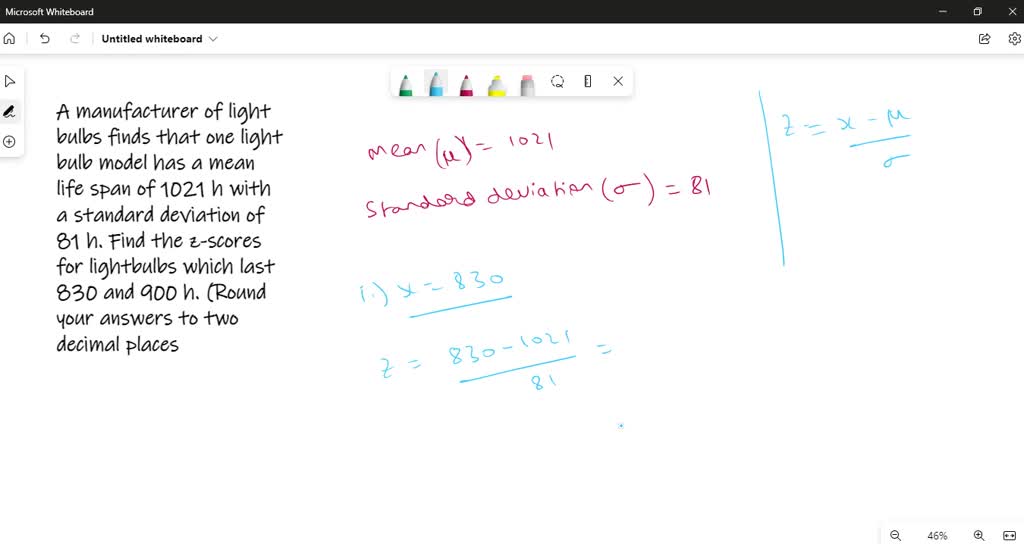 Microsoft Whiteboard
Untitled whiteboard
A manufacturer of light
bulbs finds that one light
bulb model has a mean
life span of 1021 h with
a standard deviation of
81 h. Find the z-scores
for lightbulbs which last
830 and 900 h. (Round
your answers to two
decimal places
mean (μ) = 1021
standard deviation (σ) = 81
i.) x = 830
z = 830 - 1021 =
81
z = x - μ
σ
46%